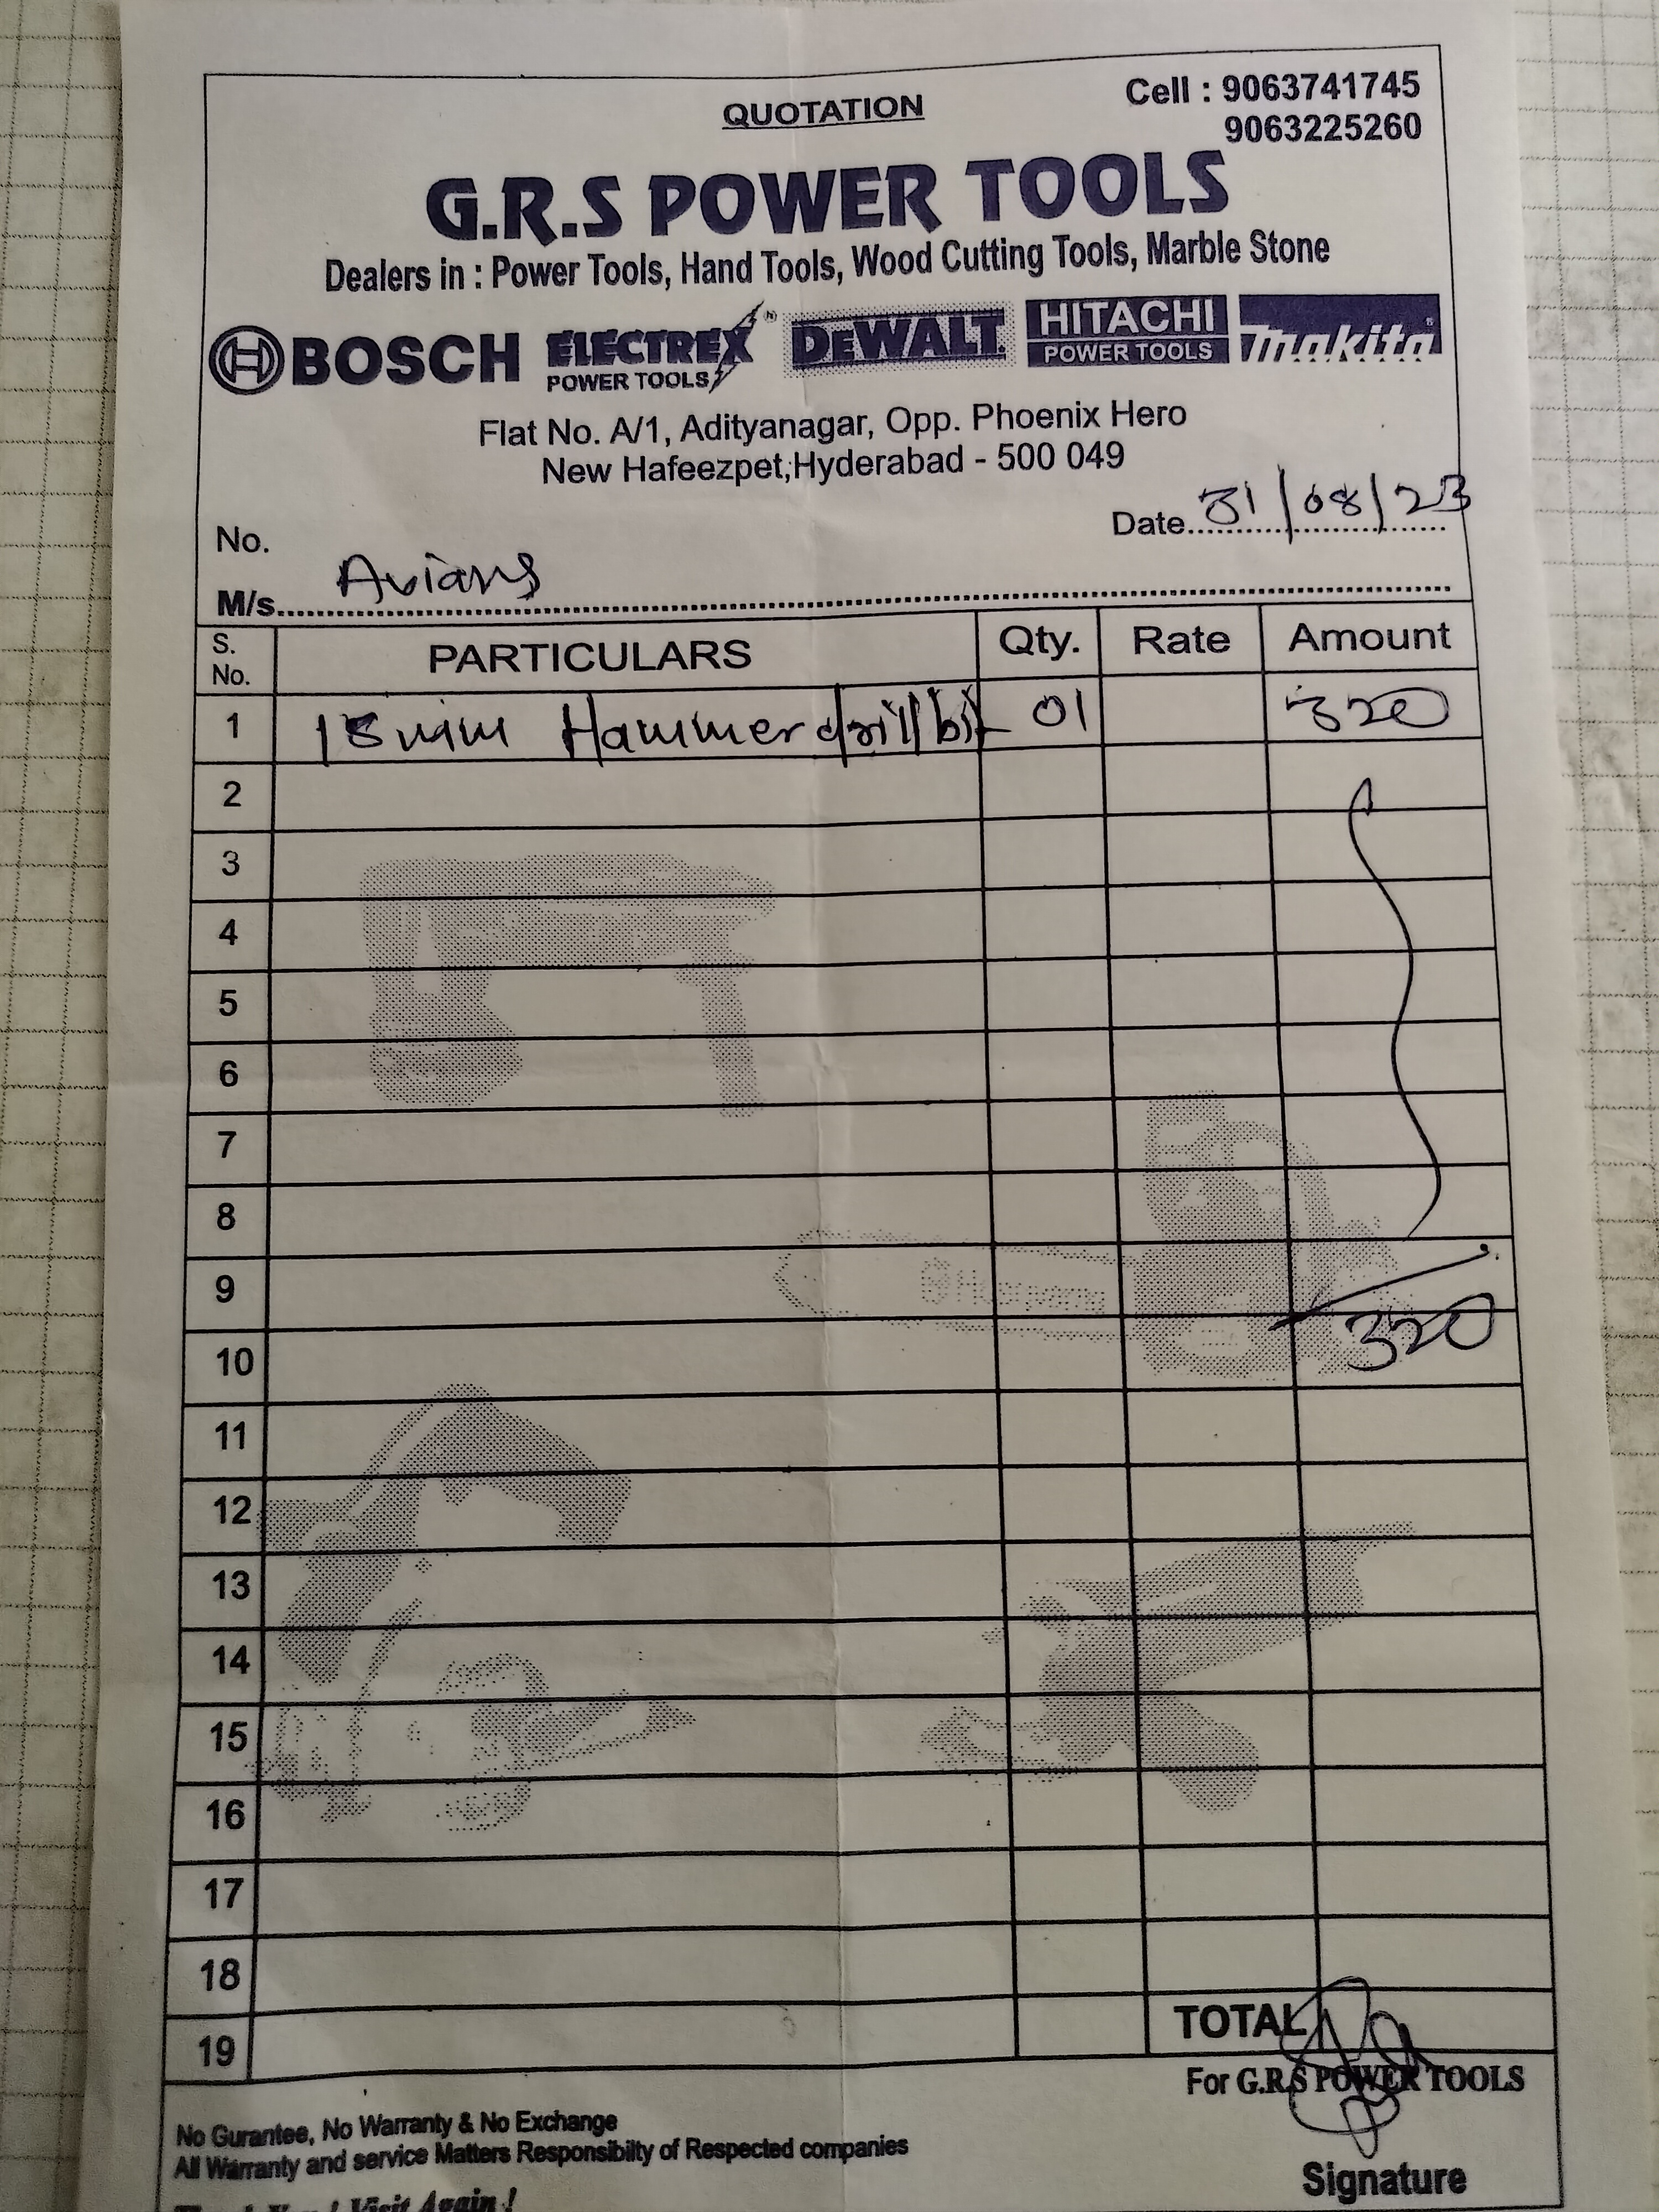 QUOTATION
Cell : 9063741745
9063225260
G.R.S POWER TOOLS
Dealers in : Power Tools, Hand Tools, Wood Cutting Tools, Marble Stone
BOSCH ELECTREX POWER TOOLS DEWALT HITACHI POWER TOOLS makita
Flat No. A/1, Adityanagar, Opp. Phoenix Hero
New Hafeezpet,Hyderabad - 500 049
No.
Date 31/08/23
M/s. Avians
S. No. PARTICULARS Qty. Rate Amount
1 18mm Hammer drill bit 01 320
2
3
4
5
6
7
8
9
10 320
11
12
13
14
15
16
17
18
19 TOTAL
For G.R.S POWER TOOLS
No Gurantee, No Warranty & No Exchange
All Warranty and service Matters Responsibilty of Respected companies
Signature
Visit Again !